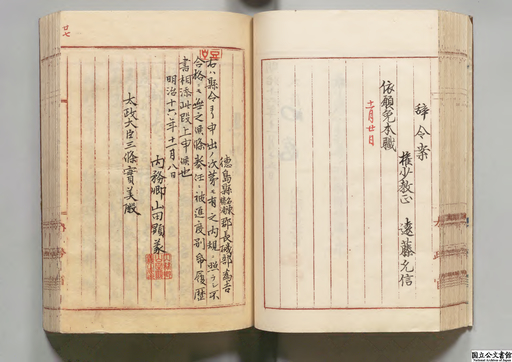 辞令案
権少教正 遠藤允信
依願免本職
十一月廿日
徳島県
郡長磯部為吉
右ハ県令ヨリ申出ノ次第モ有之内規ニ照ラシ不
合格ニモ無之候条奏任ニ被進度別命履歴
書相添此段上申候也
明治十六年十一月八日
内務卿山田顕義
太政大臣三條實美殿
廿七
国立公文書館
National Archives of Japan